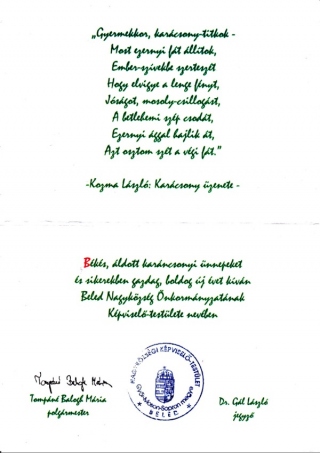 „Gyermekkor, karácsony-titkok -
Most ezernyi fát állítok,
Ember-szívekbe szerteszét
Hogy elvigye a lenge fényt,
Jóságot, mosoly-csillogást,
A betlehemi szép csodát,
Ezernyi ággal hajlik át,
Azt osztom szét a végi fát."
-Kozma László: Karácsony üzenete -
Békés, áldott karácsonyi ünnepeket
és sikerekben gazdag, boldog új évet kíván
Beled Nagyközség Önkormányzatának
Képviselő-testülete nevében
NAGYKÖZSÉGI KÉPVISELŐ-TESTÜLET
Győr-Moson-Sopron megye
BELED
Tompáné Balogh Mária
Tompáné Balogh Mária
polgármester
Dr. Gál László
jegyző